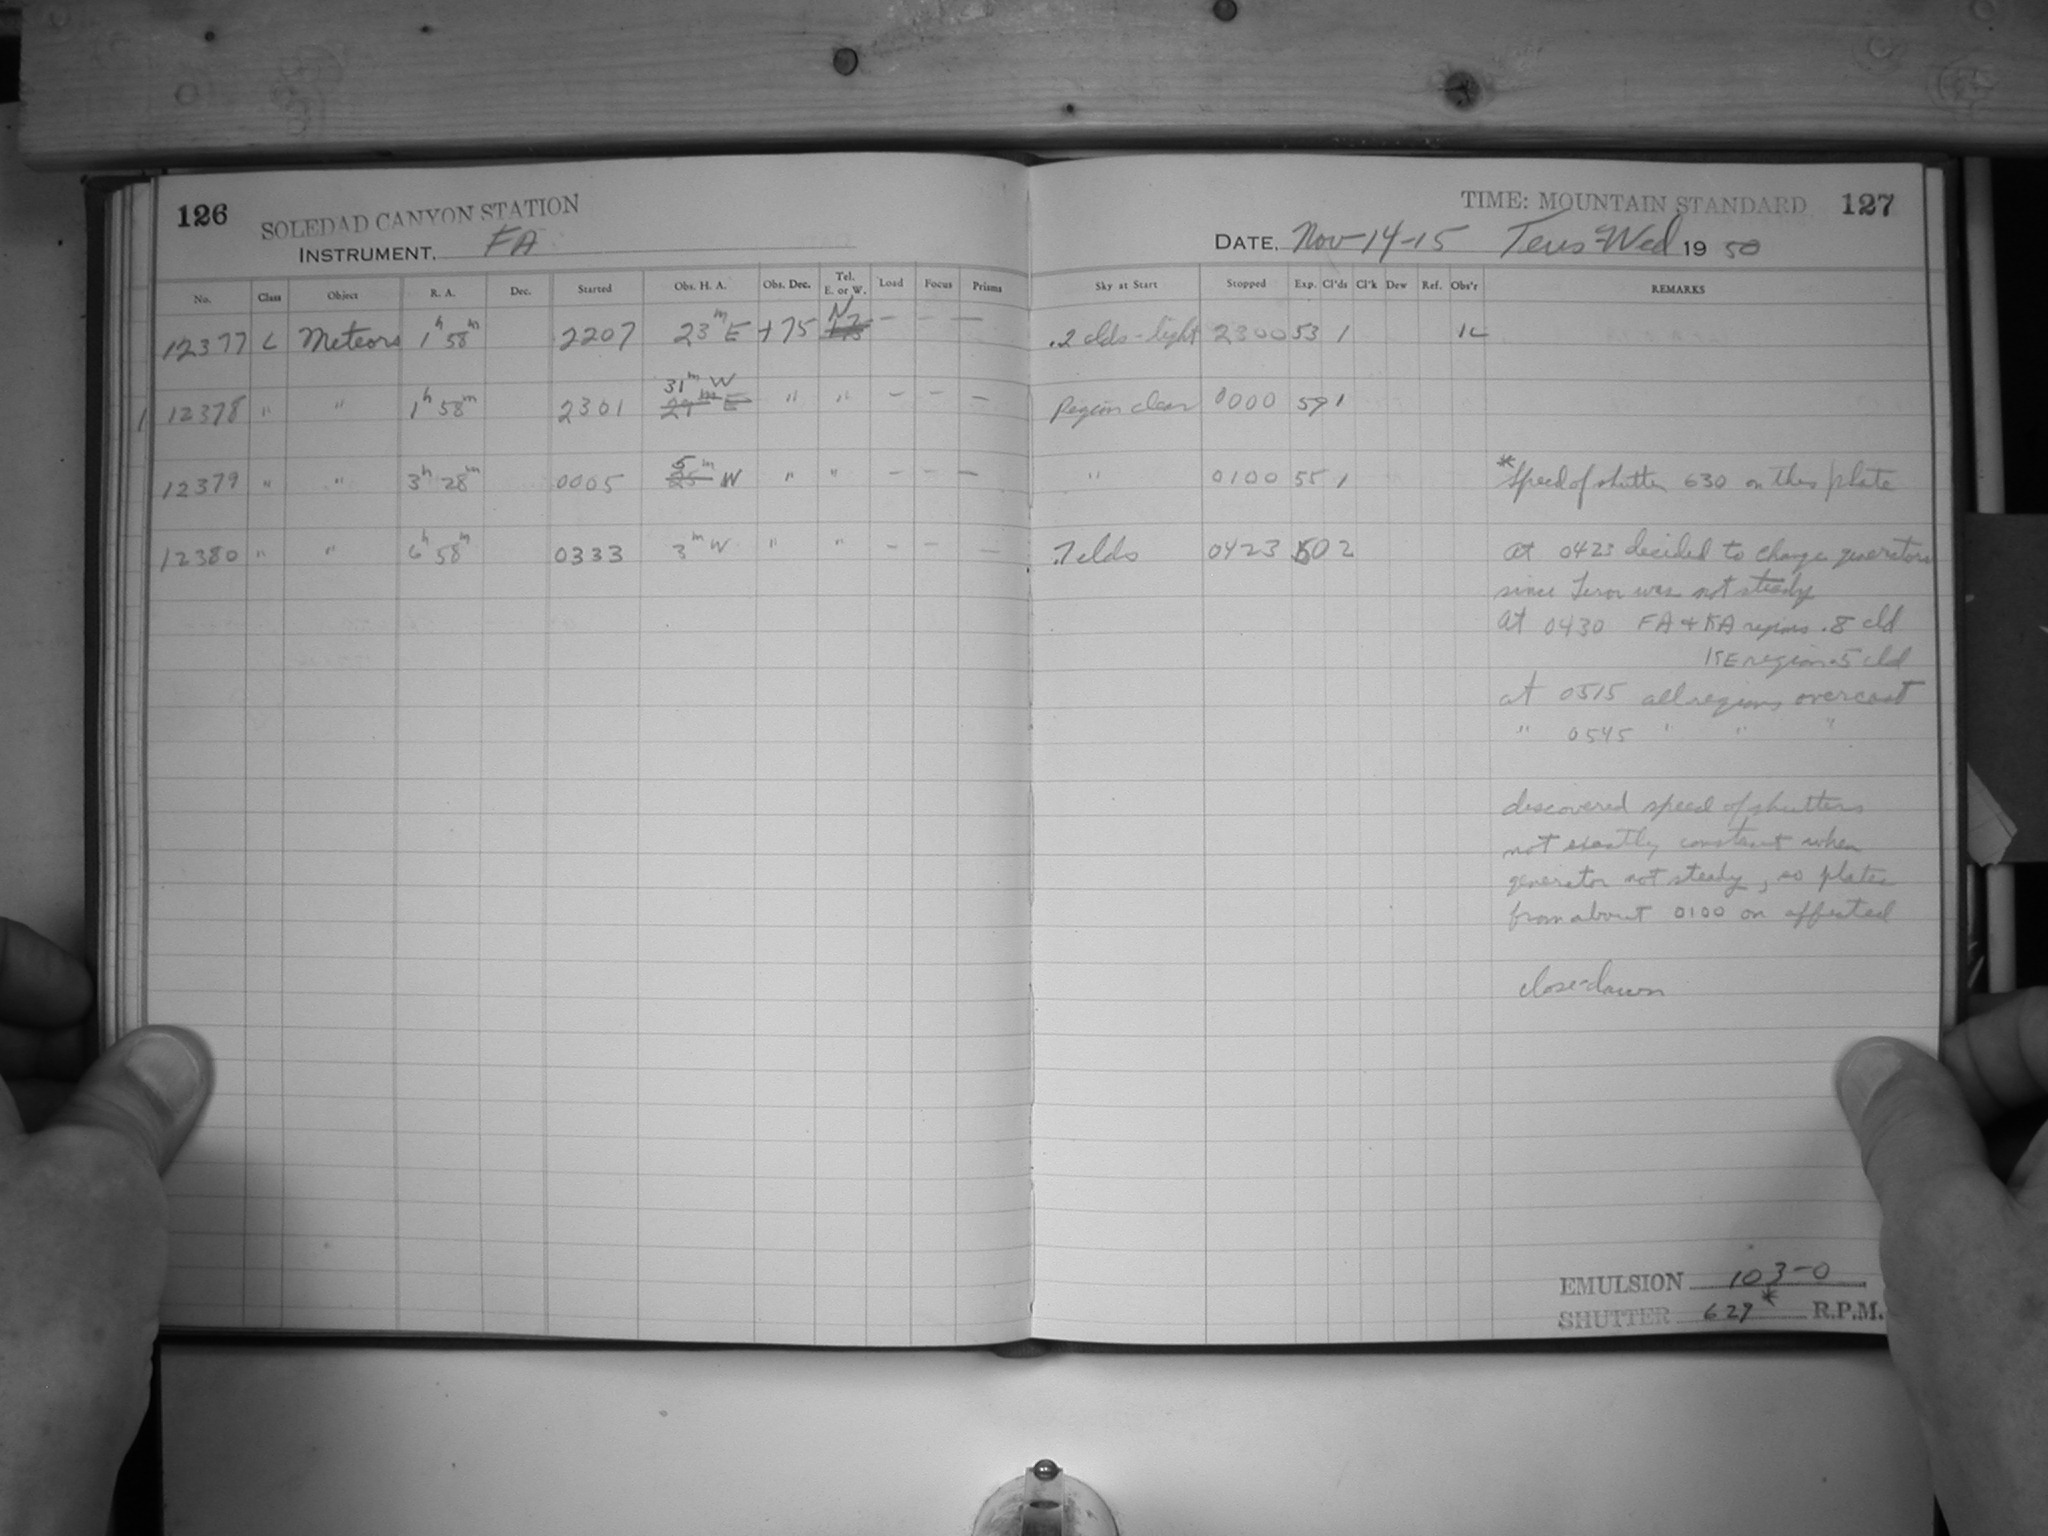 126 SOLEDAD CANYON STATION
INSTRUMENT. FA
No. Class Object R. A. Dec. Started Obs. H. A. Obs. Dec. Tel. E. or W. Load Focus Prisms
12377 C Meteors 1h 58m 2207 23m E +75 N — — —
1 12378 " " 1h 58m 2301 31m W " " — — —
12379 " " 3h 28m 0005 5m W " " — — —
12380 " " 6h 58m 0333 3m W " " — — —
TIME: MOUNTAIN STANDARD 127
DATE. Nov 14-15 Teus-Wed 1950
Sky at Start Stopped Exp. Cl'ds Cl'k Dew Ref. Obs'r REMARKS
.2 clds - light 2300 53 1
Region clear 0000 59 1
" 0100 55 1 *Speed of shutter 630 on this plate
.7 clds 0423 50 2 at 0423 decided to change generators
since was not steady
at 0430 FA + KA regions .8 cld
KE region .5 cld
at 0515 all regions overcast
" 0545 " " "
discovered speed of shutters
not exactly constant when
generator not steady, so plates
from about 0100 on affected
close-dawn
EMULSION 103-0
SHUTTER 629* R.P.M.